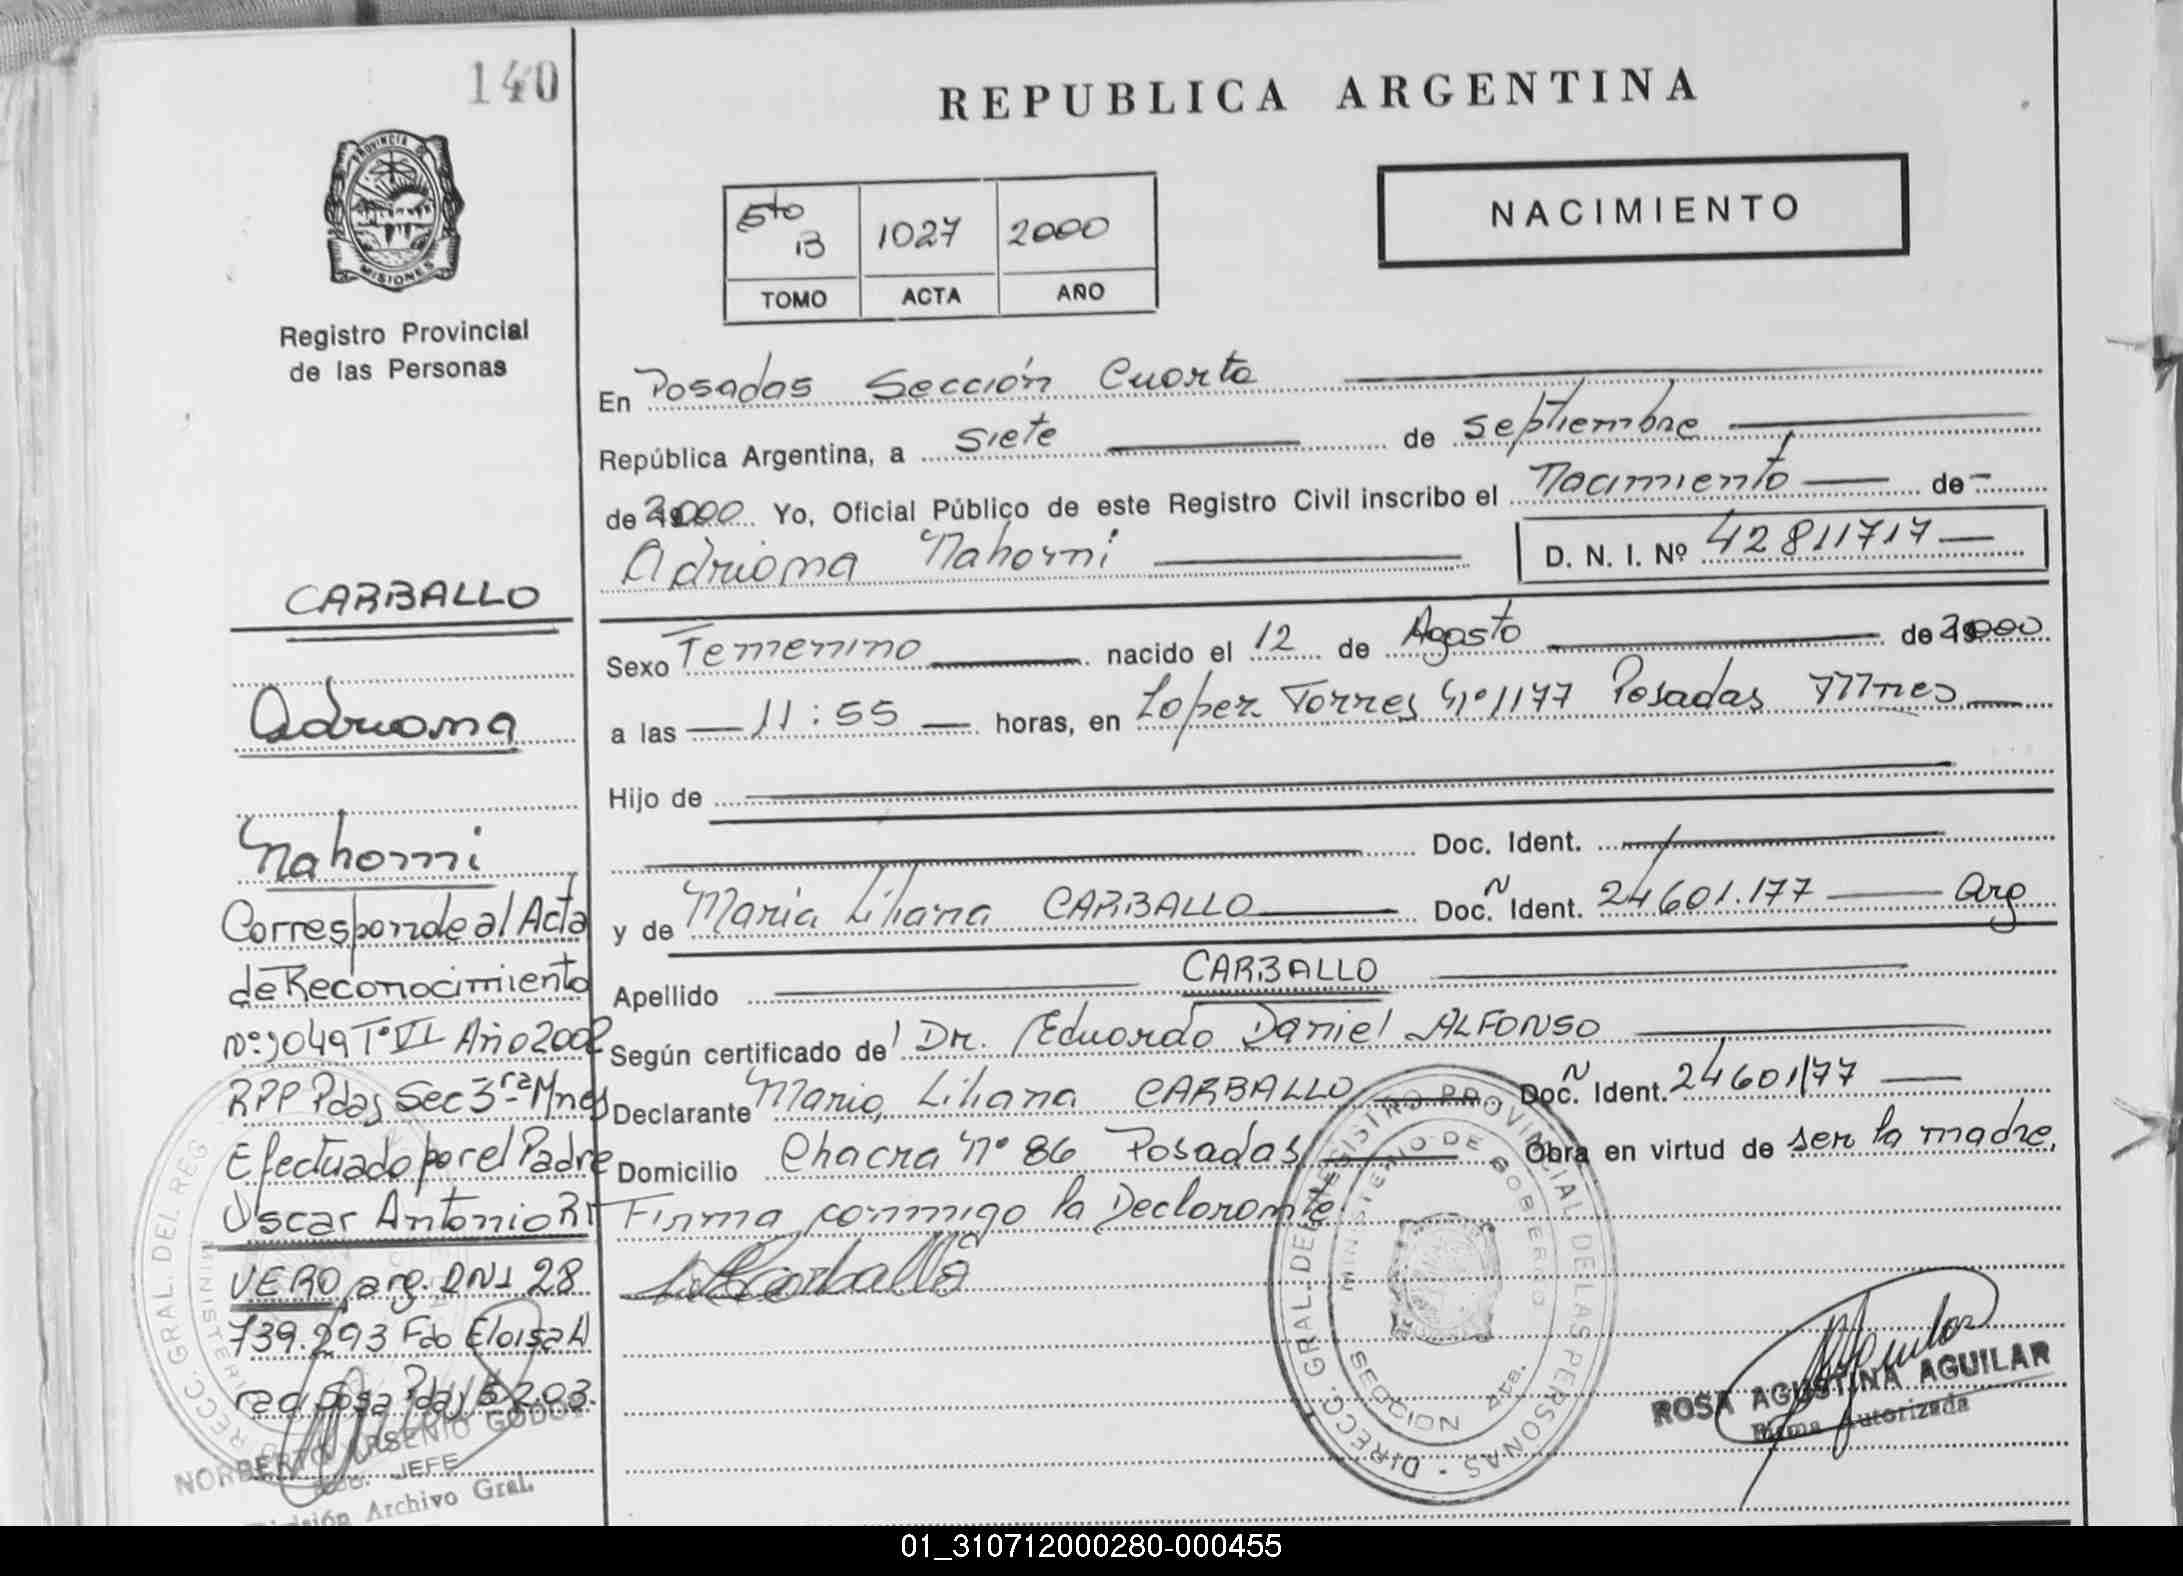 140
PROVINCIA DE
MISIONES
Registro Provincial
de las Personas
CARBALLO
Adriana
Nahomi
Corresponde al Acta
de Reconocimiento
Nº 1049 Tº VI Año 2002
RPP Pdas Sec 3ra Mnes
Efectuado por el Padre
Oscar Antonio RI
VERO, arg. DNI 28
739.293 Fdo Eloisa
Sosa Pdas 5.2.03.
NORBERTO ARSENIO GODOY
JEFE
División Archivo Gral.
REPUBLICA ARGENTINA
NACIMIENTO
5to B 1027 2000
TOMO ACTA AÑO
En Posadas Sección Cuarta
República Argentina, a siete de septiembre
de 2000 Yo, Oficial Público de este Registro Civil inscribo el Nacimiento de
Adriana Nahomi D. N. I. Nº 42811717
Sexo Femenino nacido el 12 de Agosto de 2000
a las 11:55 horas, en Lopez Torres Nº 1177 Posadas Mnes
Hijo de
Doc. Ident.
y de Maria Liliana CARBALLO Doc. N Ident. 24601.177 Arg
Apellido CARBALLO
Según certificado de Dr. Eduardo Daniel ALFONSO
Declarante Maria Liliana CARBALLO Doc. N Ident. 24601177
Domicilio Chacra Nº 86 Posadas Obra en virtud de ser la madre,
Firma conmigo la Declarante
DIRECC. GRAL. DEL REGISTRO PROVINCIAL DE LAS PERSONAS
MINISTERIO DE GOBIERNO
SECCION 4ta.
ROSA AGUSTINA AGUILAR
Firma Autorizada
01_310712000280-000455